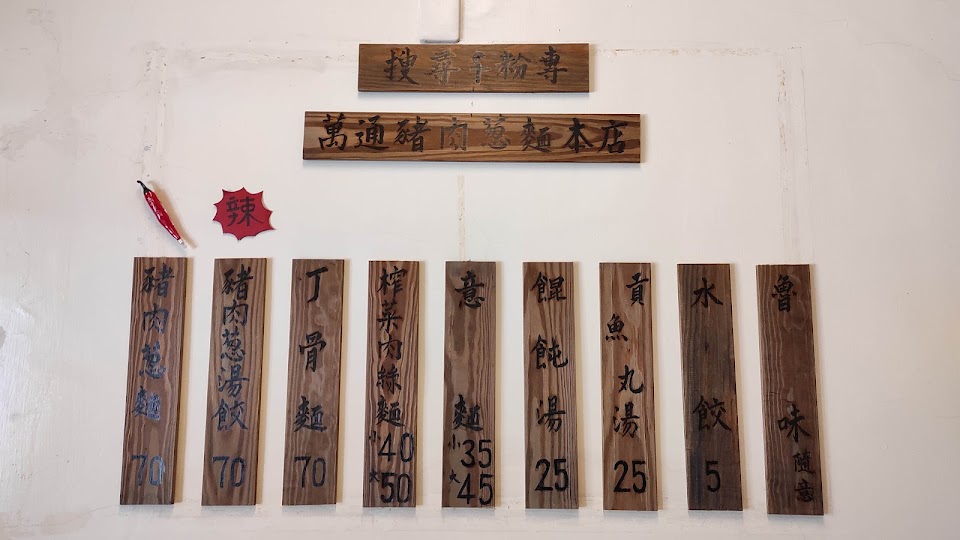 搜尋手粉專
萬通豬肉蔥麵本店
辣
豬肉蔥麵 70
豬肉蔥湯餃 70
丁骨麵 70
榨菜肉絲麵 小40 大50
意麵 小35 大45
餛飩湯 25
貢魚丸湯 25
水餃 5
魯味 隨意